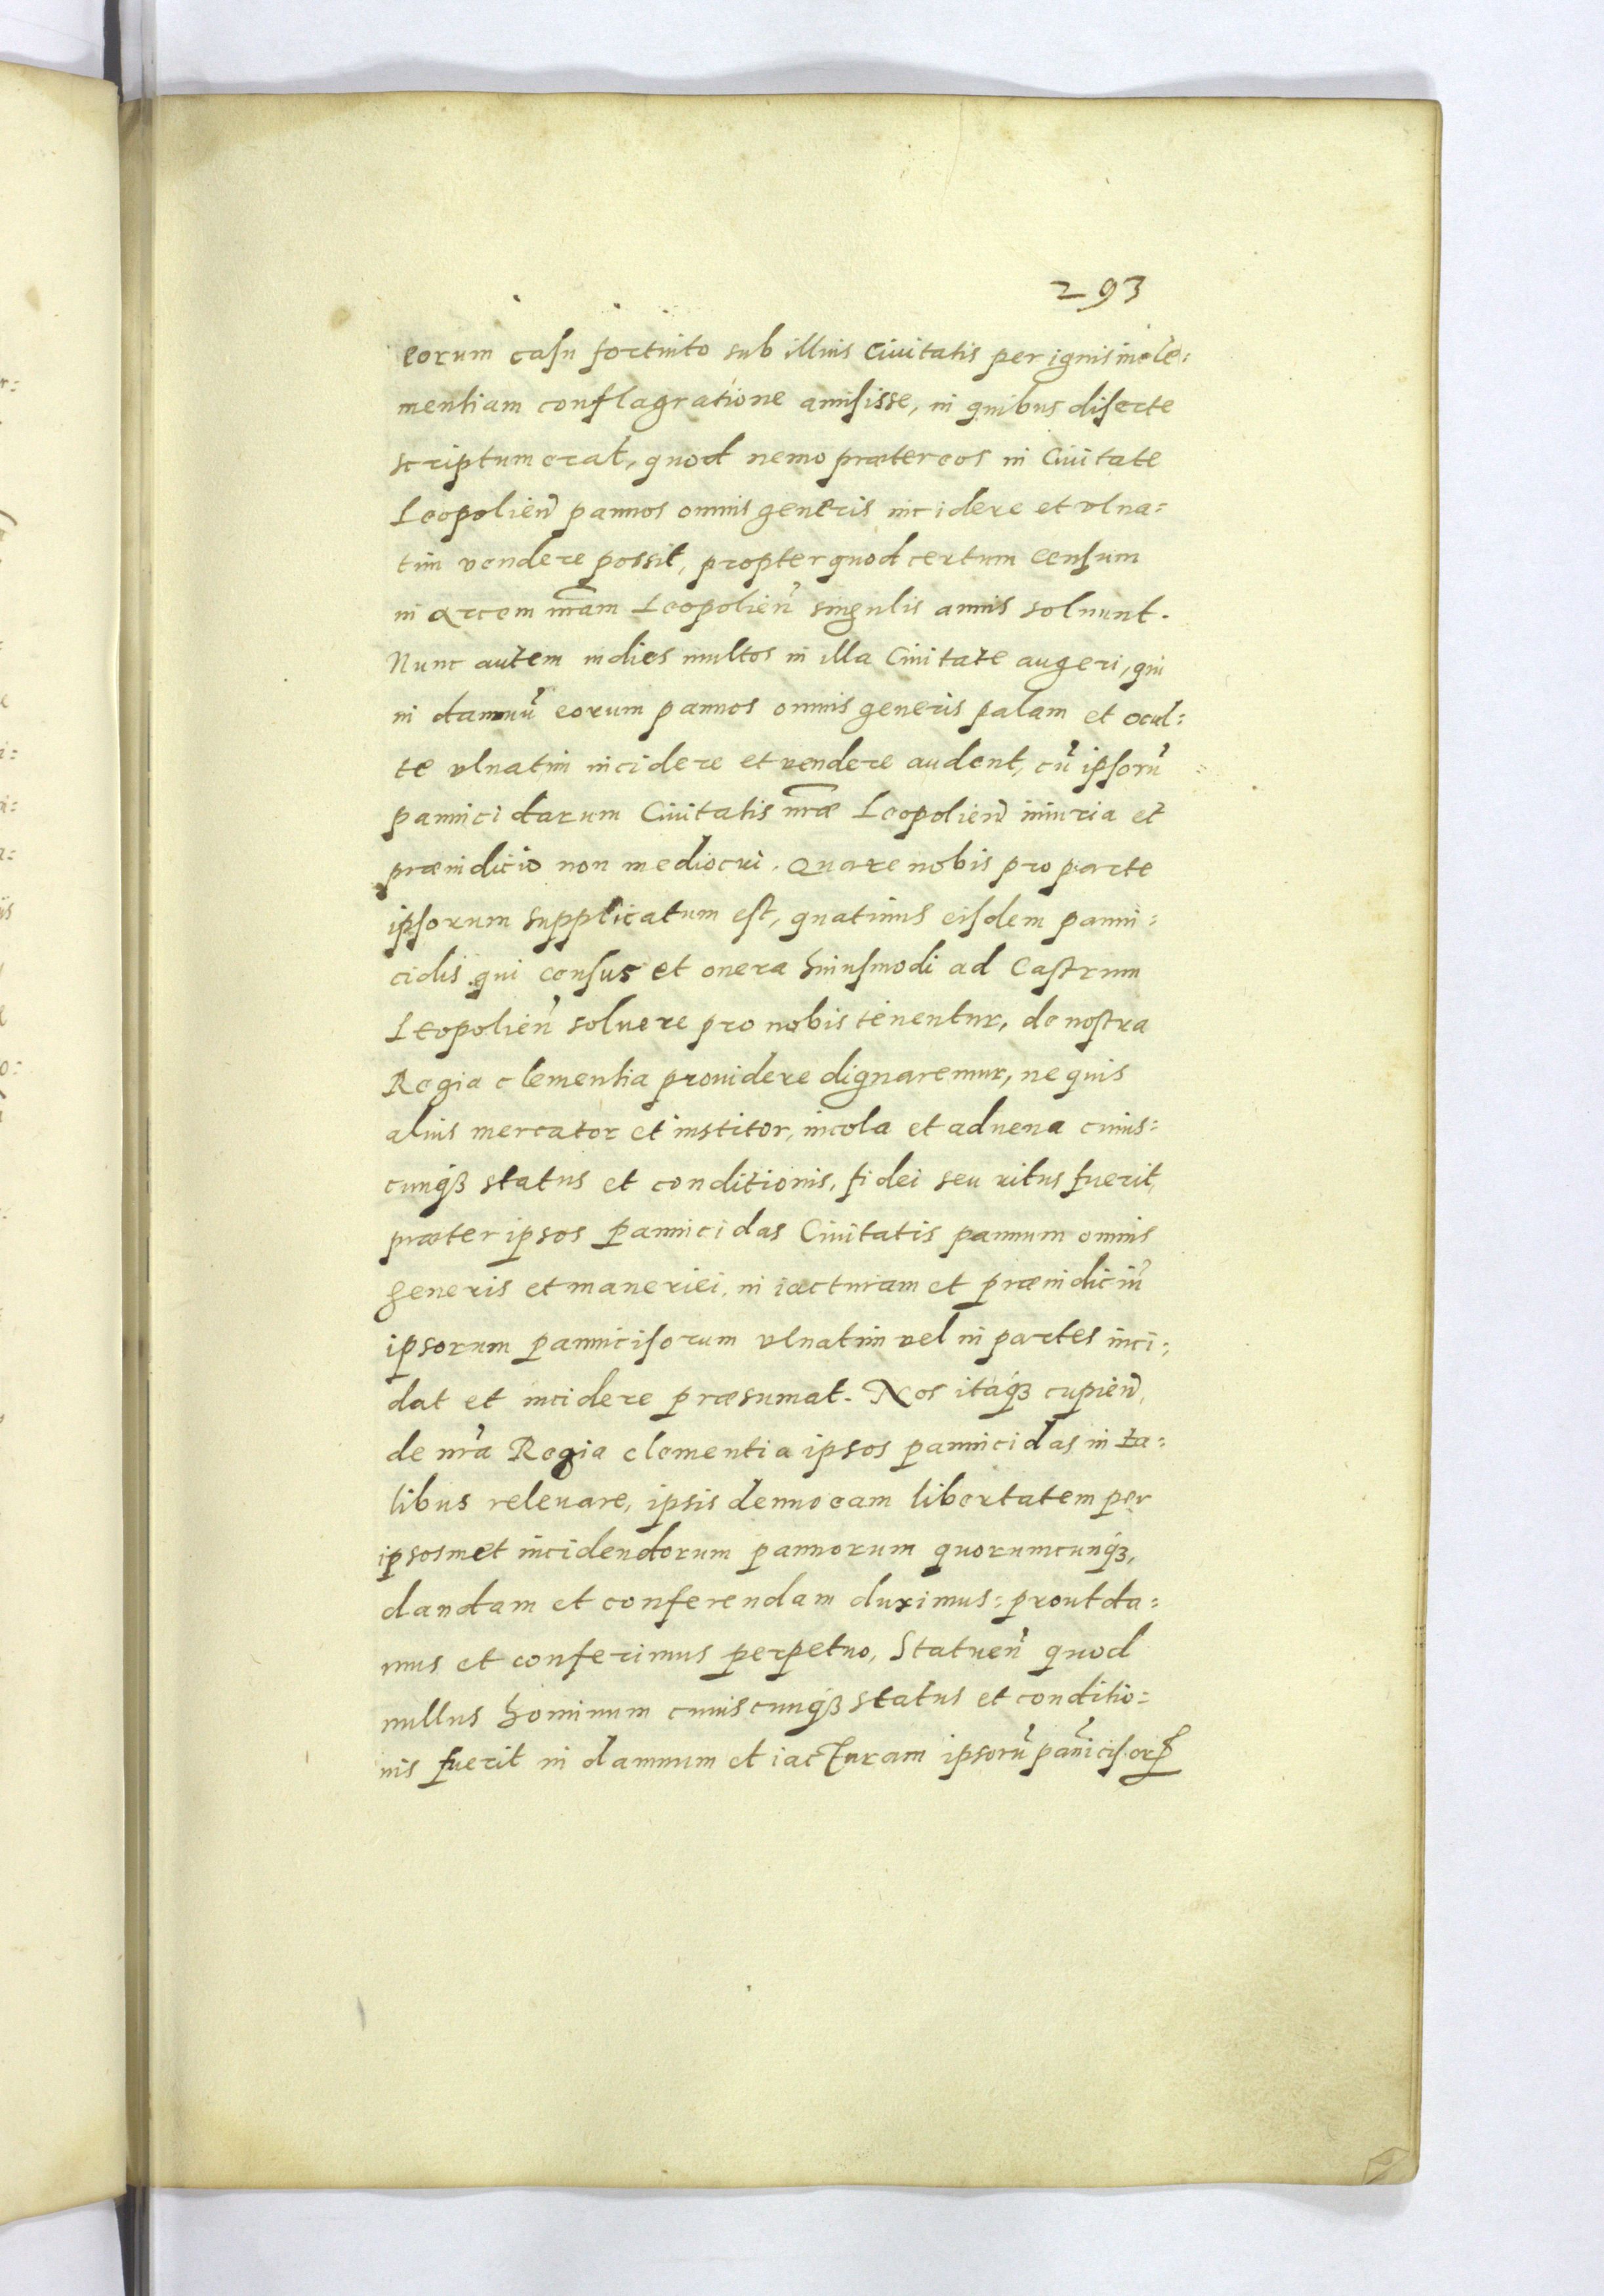 293
eorum casu fortuito sub illius Ciuitatis per ignis incle=
mentiam conflagratione amisisse, in quibus diserte
scriptum erat, quod nemo præter eos in Ciuitate
Leopolien̄ pannos omnis generis incidere et vlna=
tim vendere possit, propter quod certum censum
in Arcem nr̄am Leopolien̄ singulis annis soluunt.
Nunc autem indies multos in illa Ciuitate augeri, qui
in damnū eorum pannos omnis generis palam et ocul=
te vlnatim incidere et vendere audent, cū ipsorū
pannicidarum Ciuitatis nr̄æ Leopolien̄ iniuria et
præiudicio non mediocri. Quare nobis pro parte
ipsorum supplicatum est, quatinus eisdem panni=
cidis qui census et onera huiusmodi ad Castrum
Leopolien̄ soluere pro nobis tenentur, de nostra
Regia clementia prouidere dignaremur, ne quis
alius mercator et institor, incola et aduena cuius=
cunqȝ status et conditionis, fidei seu ritus fuerit,
præter ipsos pannicidas Ciuitatis pannum omnis
generis et maneriei, in iacturam et præiudiciū
ipsorum pannicisorum vlnatim vel in partes inci=
dat et incidere præsumat. Nos itaqȝ cupien̄,
de nr̄a Regia clementia ipsos pannicidas in ta=
libus releuare, ipsis denuo eam libertatem per
ipsosmet incidendorum pannorum quorumcunqȝ,
dandam et conferendam duximus: prout da=
mus et conferimus perpetuo, Statuen̄ quod
nullus hominum cuiuscunqȝ status et conditio=
nis fuerit in damnum et iacturam ipsorū pān̄icisorꝝ